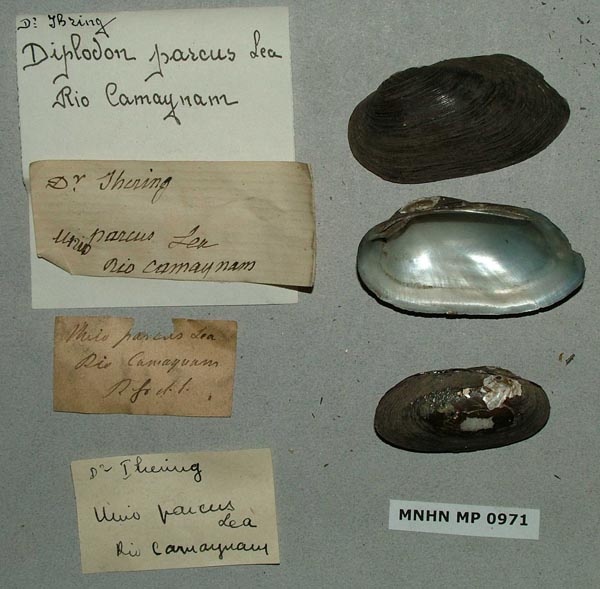 Dr Ihring
Diplodon parcus Lea
Rio Camaynam
Dr Ihering
Unio parcus Lea
Rio Camaynam
Unio parcus Lea
Rio Camaynam
Dr Ihering
Unio parcus
Lea
Rio Camaynam
MNHN MP 0971